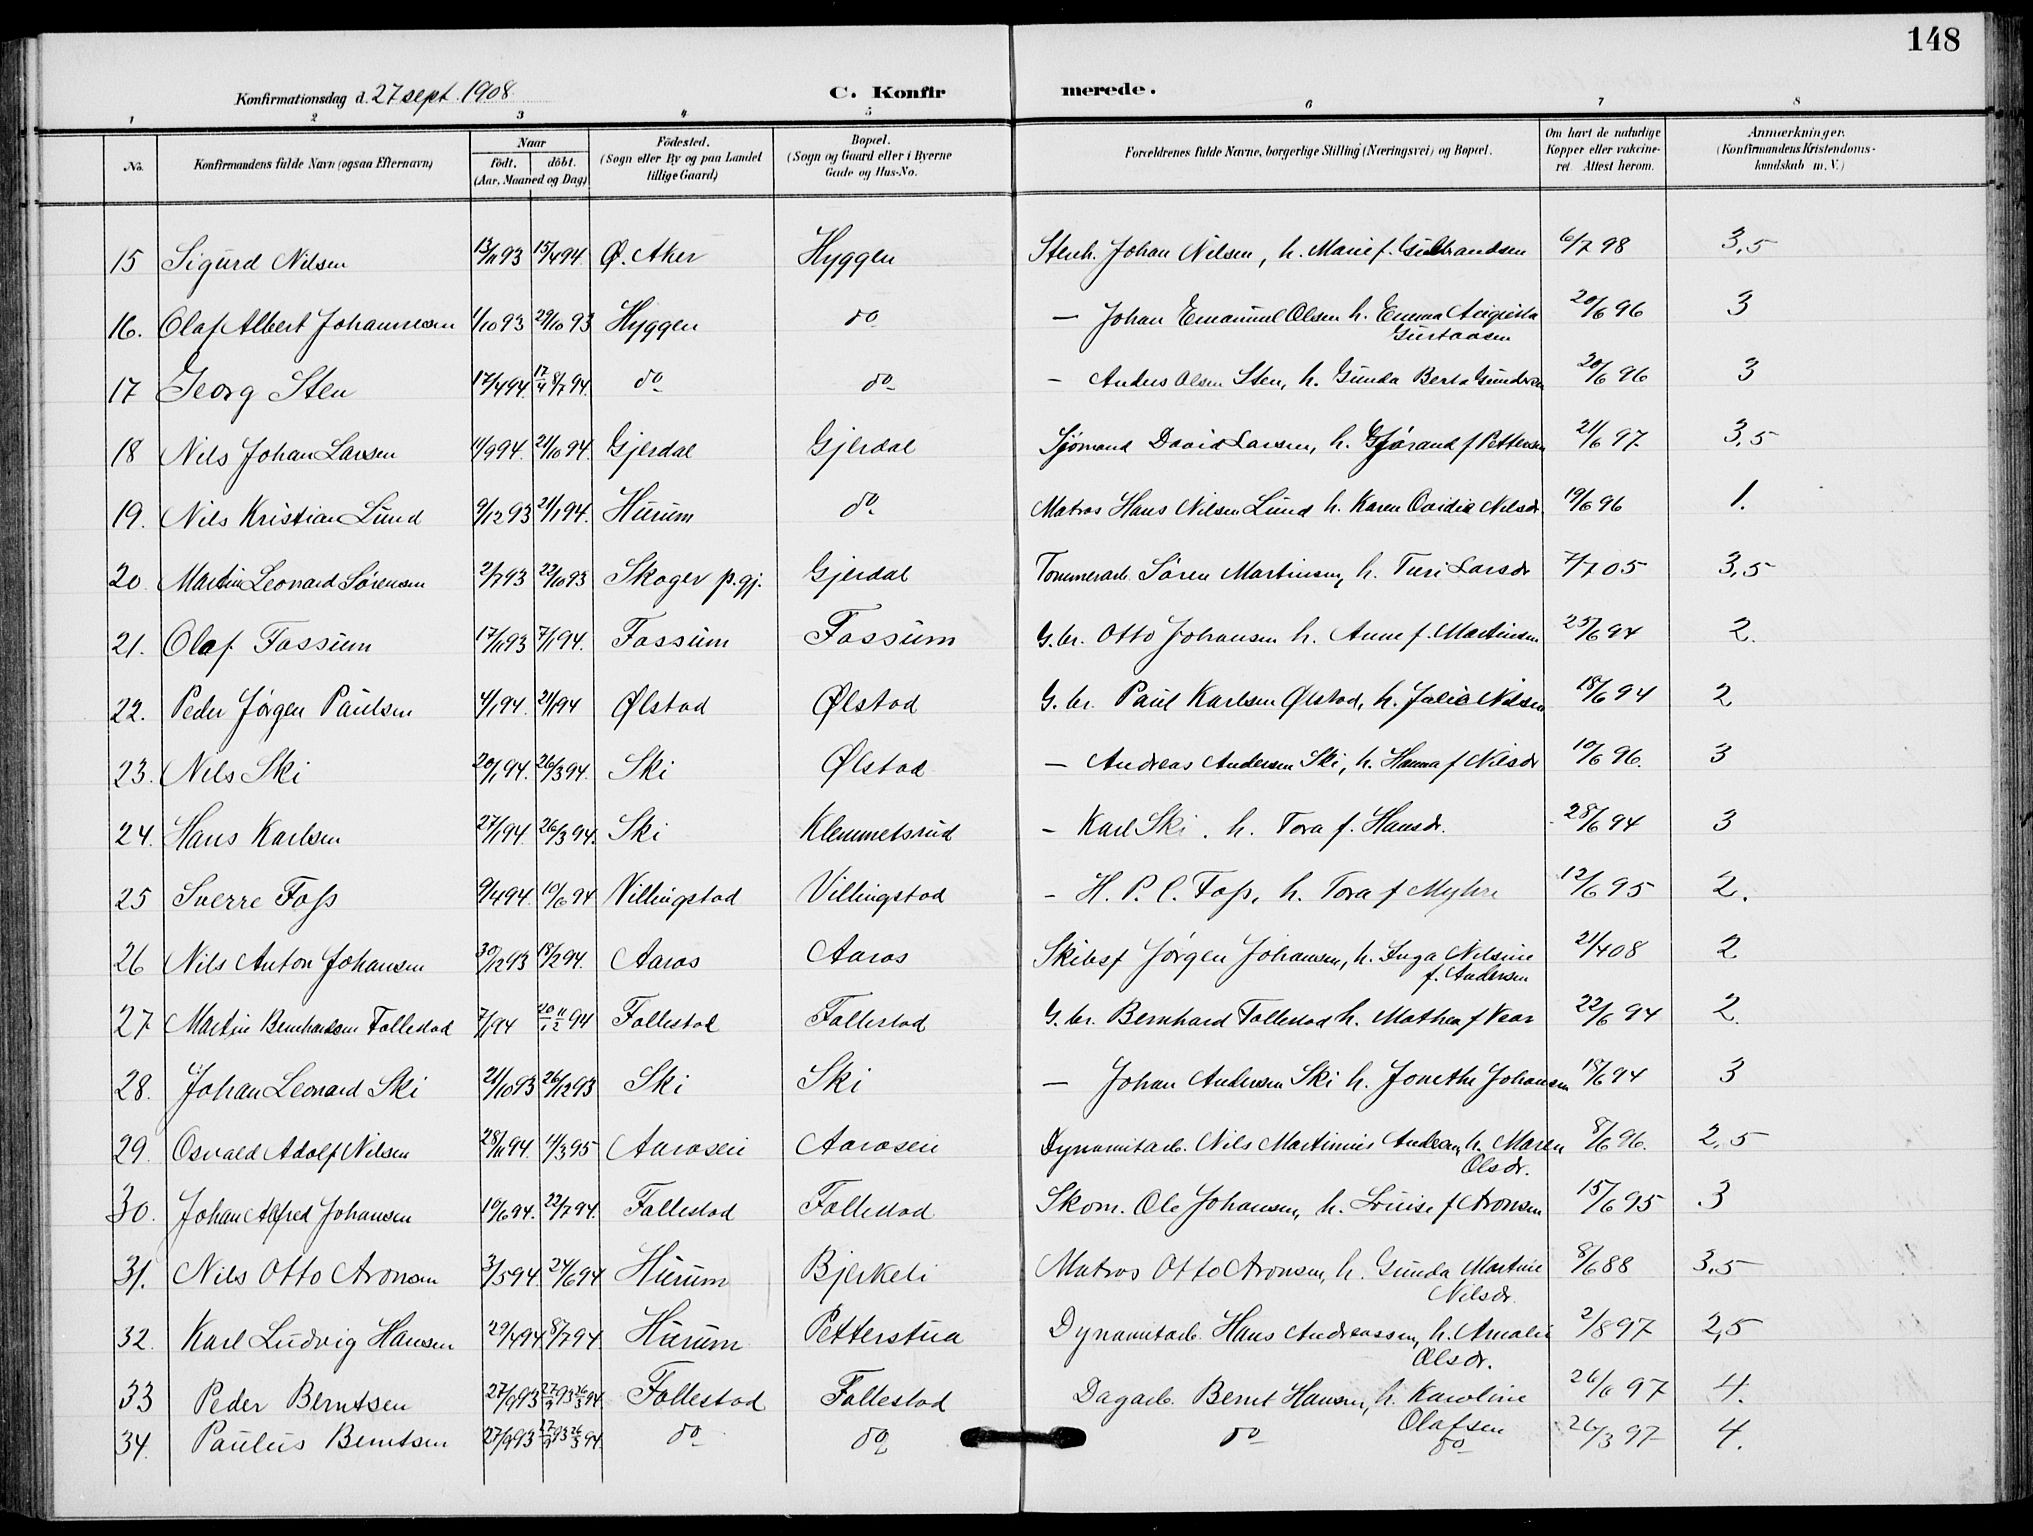 148
Konfirmationsdag d. 27 sept. 1908
C. Konfirmerede.
1 2 3 4 5 6 7 8
No. Konfirmandens fulde Navn (ogsaa Efternavn) Naar födt. döbt. (Aar, Maaned og Dag) Födested. (Sogn eller By og paa Landet tillige Gaard) Bopæl. (Sogn og Gaard eller i Byerne Gade og Hus-No. Forældrenes fulde Navne, borgerlige Stilling (Næringsvei) og Bopæl. Om havt de naturlige Kopper eller vakcineret. Attest herom. Anmærkninger. (Konfirmandens Kristendomskundskab m. V.)
15 Sigurd Nilsen 13/11 93 15/4 94. Ø. Aker Hyggen Stenh. Johan Nilsen, h. Marie f. Gulbrandsen 6/7 98 3,5
16. Olaf Albert Johannesen 1/10 93 29/10 93 Hyggen do Johan Emanuel Olsen h. Emma Augusta 20/6 96 3
Gustavsen
17 Georg Sten 17/4 94. 17/4 8/7 94. do do - Anders Olsen Sten, h. Gunda Berta Gundersen 20/6 96 3
18 Nils Johan Larsen 11/9 94. 21/10 94. Gjerdal Gjerdal Sjömand David Larsen, h. Gjørand f Pettersen 21/6 97 3,5
19. Nils Kristian Lund 9/12 93 21/1 94. Hurum do Matros Hans Nilsen Lund h. Karen Ovidia Nilsdr. 19/6 96 1.
20. Martin Leonard Sørensen 2/7 93 22/10 93 Skoger p.gj. Gjerdal Tømmerarb. Sören Martinsen, h. Turi Larsdr 7/7 05 3,5
21. Olaf Fossum 17/11 93 7/1 94. Fossum Fossum G.br. Otto Johansen h. Anne f. Martinsen 25/6 94 2.
22. Peder Jørgen Paulsen 4/1 94. 21/1 94 Ølstad Ølstad G. br. Paul Karlsen Ølstad, h. Julie Nilsen 18/6 94 2
23. Nils Ski 20/1 94. 26/3 94. Ski Ølstad — Andreas Andersen Ski, h. Hanna f Nilsdr 10/6 96. 3
24. Hans Karlsen 27/1 94. 26/3 94. Ski Klemmetsrud - Karl Ski. h. Tora f. Hansdr. 28/6 94 3
25 Sverre Foss 9/4 94. 10/6 94 Villingstad Villingstad - H. P. C. Foss, h. Tora f Myhre 12/6 95 2.
26 Nils Anton Johansen 30/12 93 18/2 94. Aaros Aaros Skibsf Jørgen Johansen, h. Inga Nilsine 21/4 08 2
f. Andersen
27 Martin Bernhardsen Follestad 7/1 94 94 Follestad Follestad G. br. Bernhard Follestad h. Mathea f Vear 22/6 94 2.
28. Johan Leonard Ski 21/10 93 26/12 93 Ski Ski — Johan Andersen Ski h. Jonethe Johansen 18/6 94 3
29. Osvald Adolf Nilsen 28/11 94. 4/3 95 Aaroseie Aaroseie Dynamitarb. Nils Martinius Andersen, h. Maren 8/6 96. 2,5
Olsdr.
30. Johan Alfred Johansen 10/6 94. 22/7 94. Follestad Follestad Skom. Ole Johansen, h. Louise f Aronsen 15/6 95 3
31. Nils Otto Aronsen 3/5 94. 24/6 94. Hurum Bjerkeli Matros Otto Aronsen, h. Gunda Martine 8/6 88 3,5
Nilsdr.
32. Karl Ludvig Hansen 29/4 94. 8/7 94 Hurum Petterstua Dynamitarb. Hans Andreassen, h. Amalie 2/8 97 2,5
Olsdr.
33 Peder Berntsen 27/9 93 27/9 93 26/3 94 Follestad Follestad Dagarb. Bernt Hansen, h. Karoline 26/6 97 4.
Olafsen
34. Paulus Berntsen 27/9 93 27/9 93 26/3 94. do do do do 26/3 97 4.